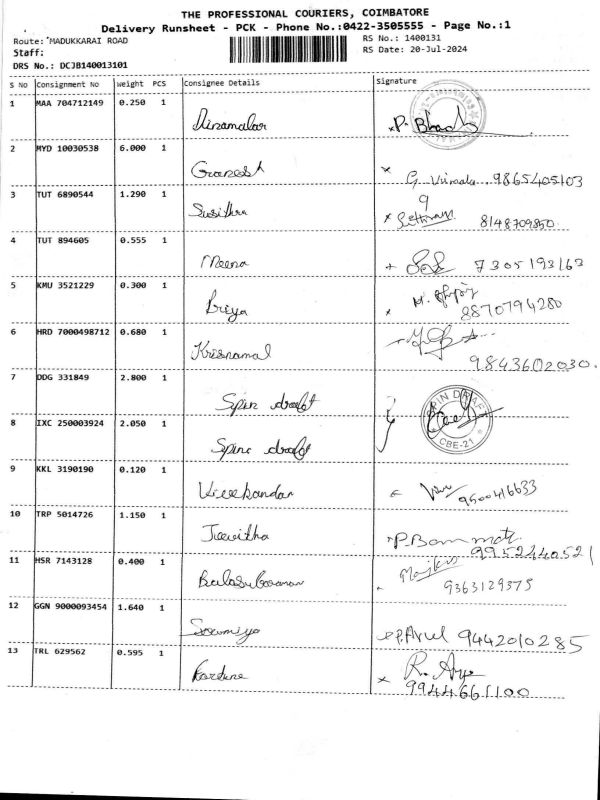 THE PROFESSIONAL COURIERS, COIMBATORE
Delivery Runsheet - PCK - Phone No.:0422-3505555 - Page No.:1
Route: MADUKKARAI ROAD
RS No.: 1400131
Staff:
RS Date: 20-Jul-2024
DRS No.: DCJB140013101
S No Consignment No Weight PCS Consignee Details Signature
1 MAA 704712149 0.250 1
Dinamalar P. Bharath
2 MYD 10030538 6.000 1
Ganesh G. Vimala 9865405103
3 TUT 6890544 1.290 1
Susithra 8148709850
4 TUT 894605 0.555 1
Meena 7305193163
5 KMU 3521229 0.300 1
Priya 8870794280
6 HRD 7000498712 0.680 1
Krisnamal 9843602030.
7 DDG 331849 2.800 1
Spin draft
8 IXC 250003924 2.050 1
Spinc draft
SPIN DRAFT
CBE-21
9 KKL 3190190 0.120 1
Vivekandar 9500416633
10 TRP 5014726 1.150 1
Jeevitha 9952440521
11 HSR 7143128 0.400 1
Balasubramanan 9363129375
12 GGN 9000093454 1.640 1
Sowmiya P. Arul 9442010285
13 TRL 629562 0.595 1
R. Arya
9944661100